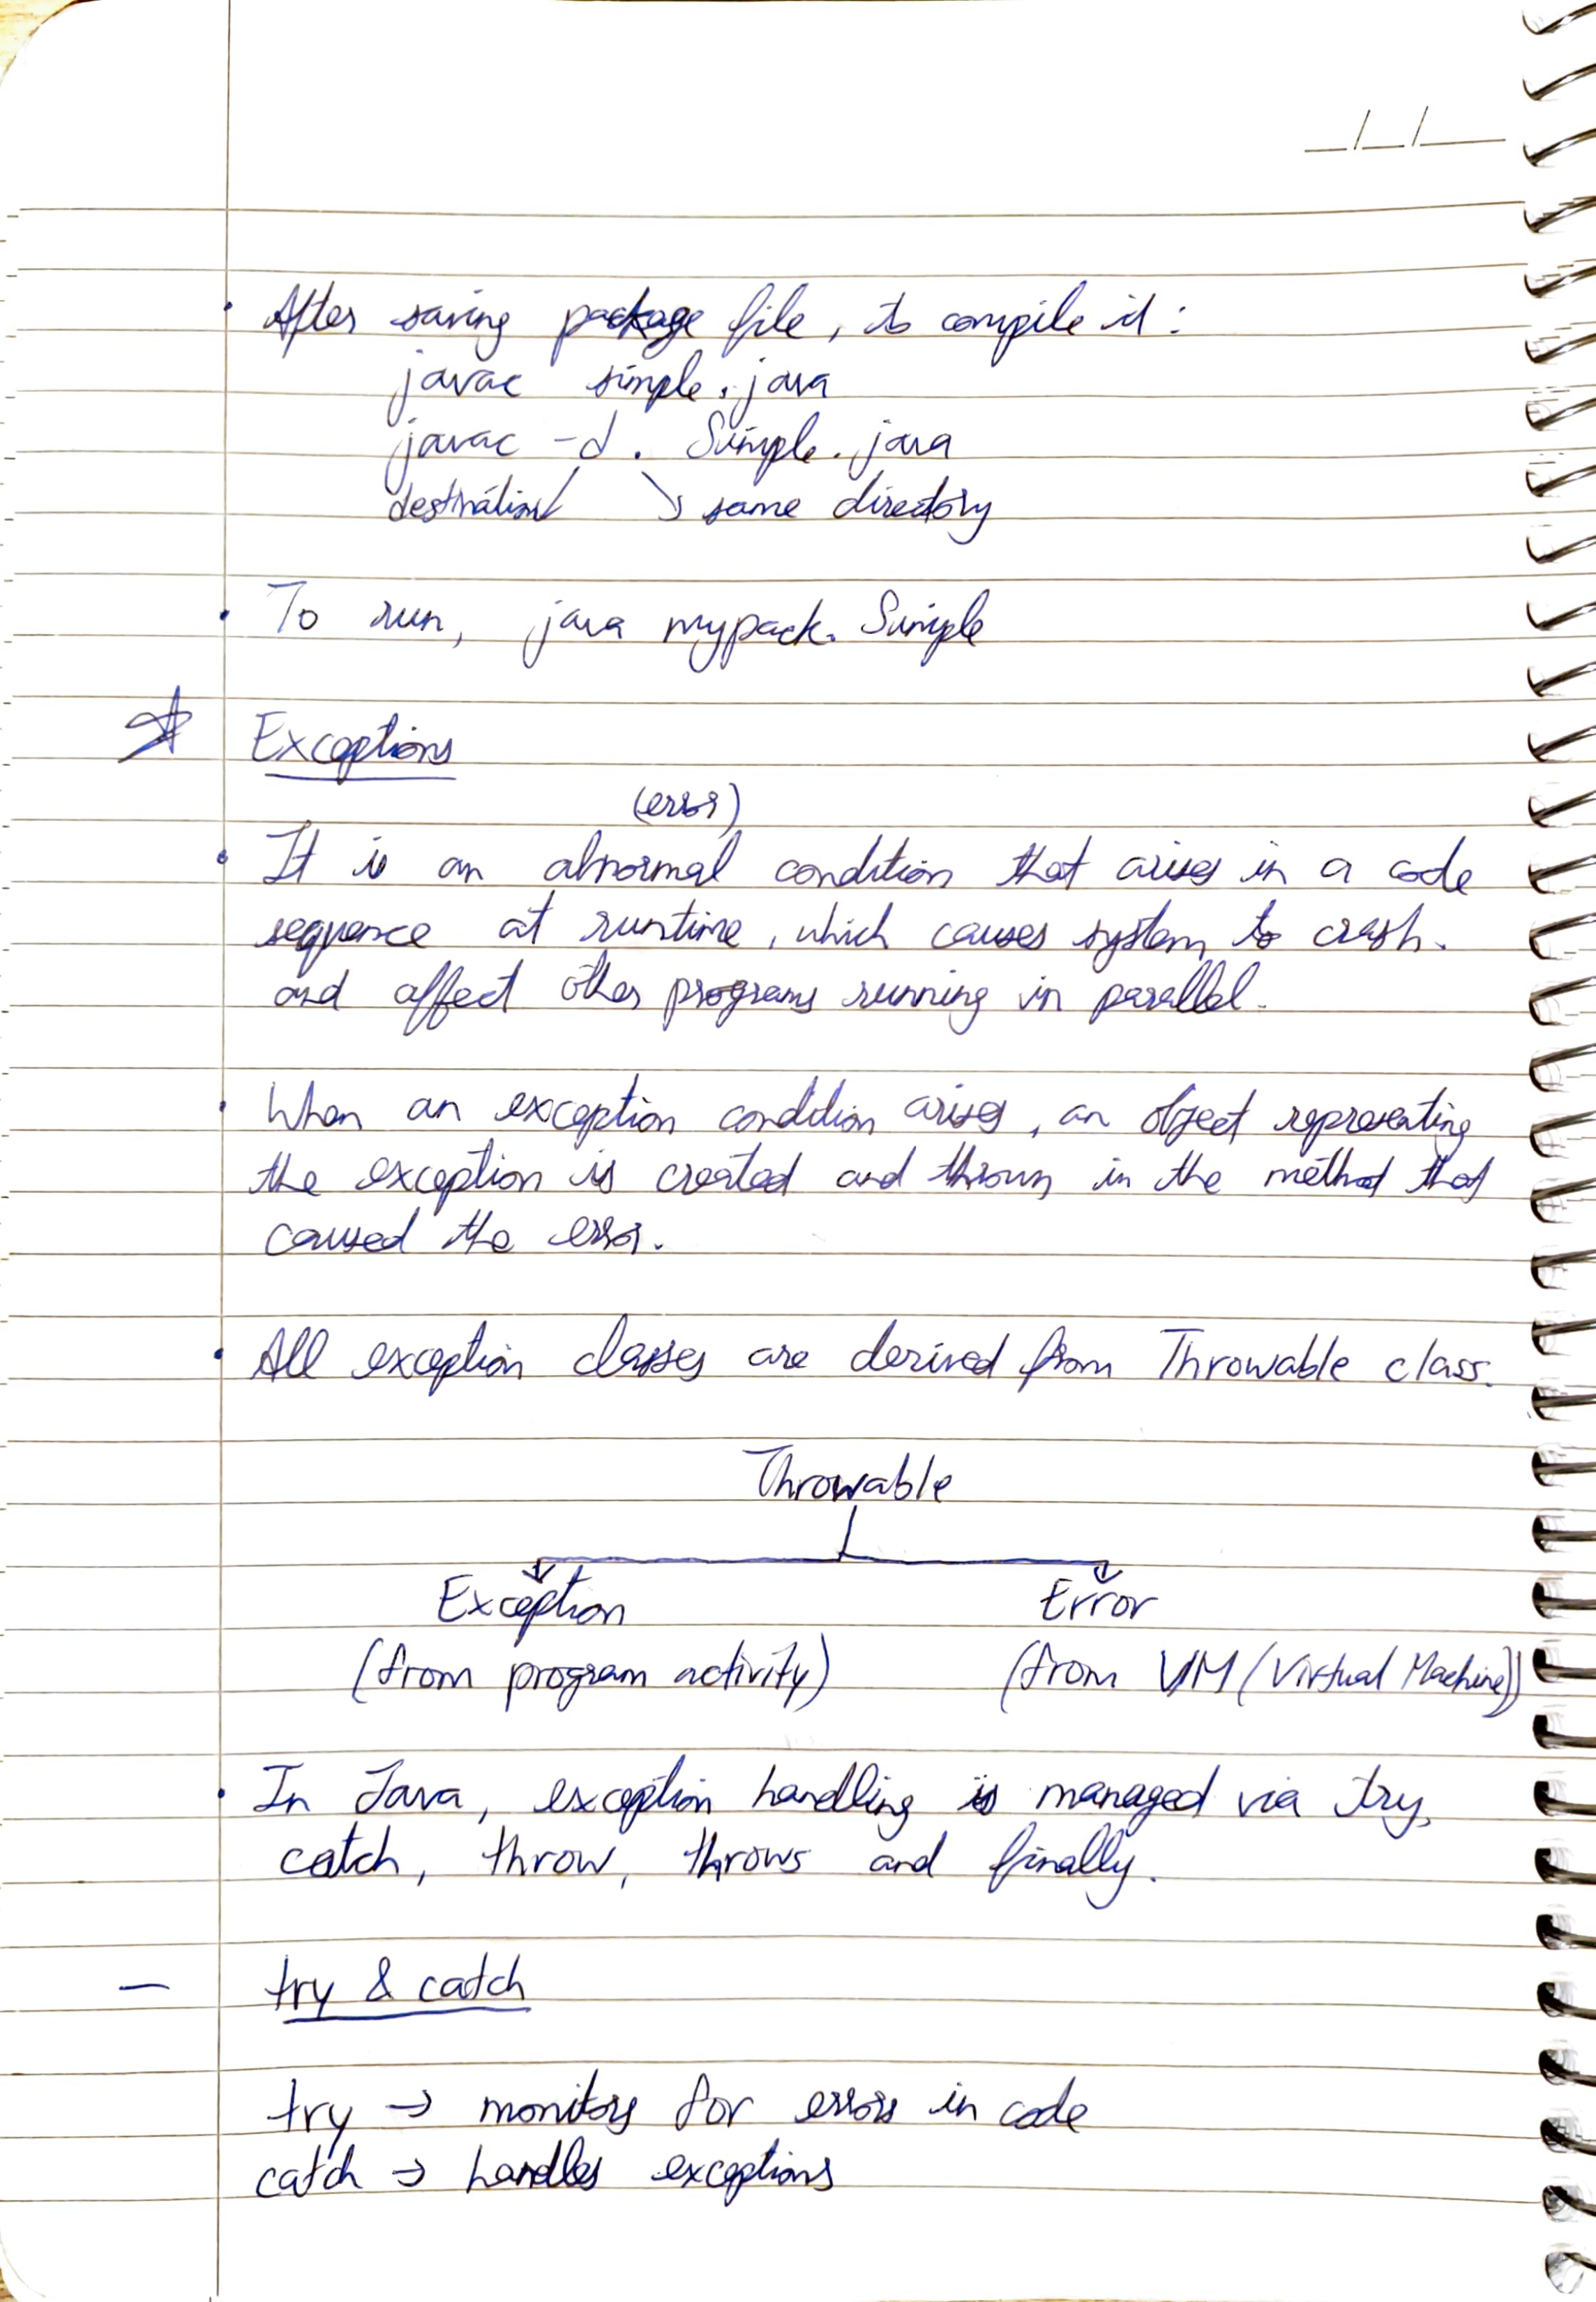 • After saving package file, to compile it :
javac simple.java
javac -d . Simple.java
destination same directory
• To run, java mypack.Simple
☆ Exceptions
(error)
• It is an abnormal condition that arises in a code
sequence at runtime, which causes system to crash.
and affect other programs running in parallel.
• When an exception condition arises, an object representing
the exception is created and thrown in the method that
caused the error.
• All exception classes are derived from Throwable class.
Throwable
Exception Error
(from program activity) (from VM (Virtual Machine))
• In Java, exception handling is managed via try,
catch, throw, throws and finally.
— try & catch
try → monitors for errors in code
catch → handles exceptions